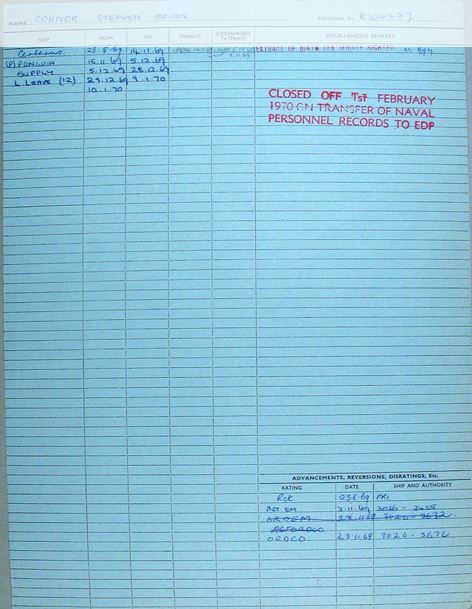 NAME CONNOR STEPHEN BRIAN PERSONAL No. R104227
SHIP FROM TO TRANSIT DISCHARGED To (Panel) MISCELLANEOUS REMARKS
Cerberus 14.11.69 EXTRACT OF BIRTH
(P) PENGUIN 15.11.69 5.12.69
SUPPLY 5.12.69 28.12.69
L. LEAVE (12) 29.12.69 9.1.70
10.1.70
CLOSED OFF 1ST FEBRUARY
1970 ON TRANSFER OF NAVAL
PERSONNEL RECORDS TO EDP
ADVANCEMENTS, REVERSIONS, DISRATINGS, Etc.
RATING DATE SHIP AND AUTHORITY
Rct
RCT EM 3.11.69 3026 -
23.11.69 3026 - 3632
ORDCO 23.11.69 3026 - 3676